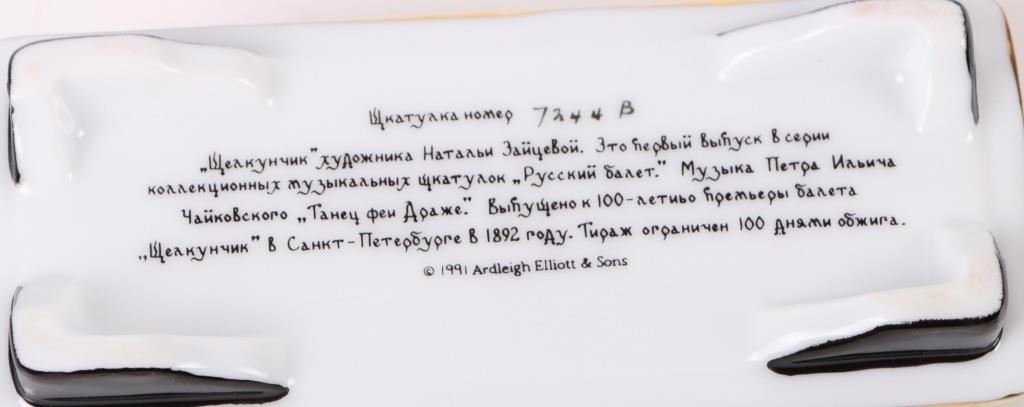 Щкатулка номер 7244 B
„Щелкунчик" художника Натальи Зайцевой. Это первый выпуск в серии
коллекционных музыкальных щкатулок „Русский балет." Музыка Петра Ильича
Чайковского „Танец феи Драже." Выпущено к 100-летиьо премьеры балета
„Щелкунчик" в Санкт-Петербурге в 1892 году. Тираж ограничен 100 днями обжига.
© 1991 Ardleigh Elliott & Sons